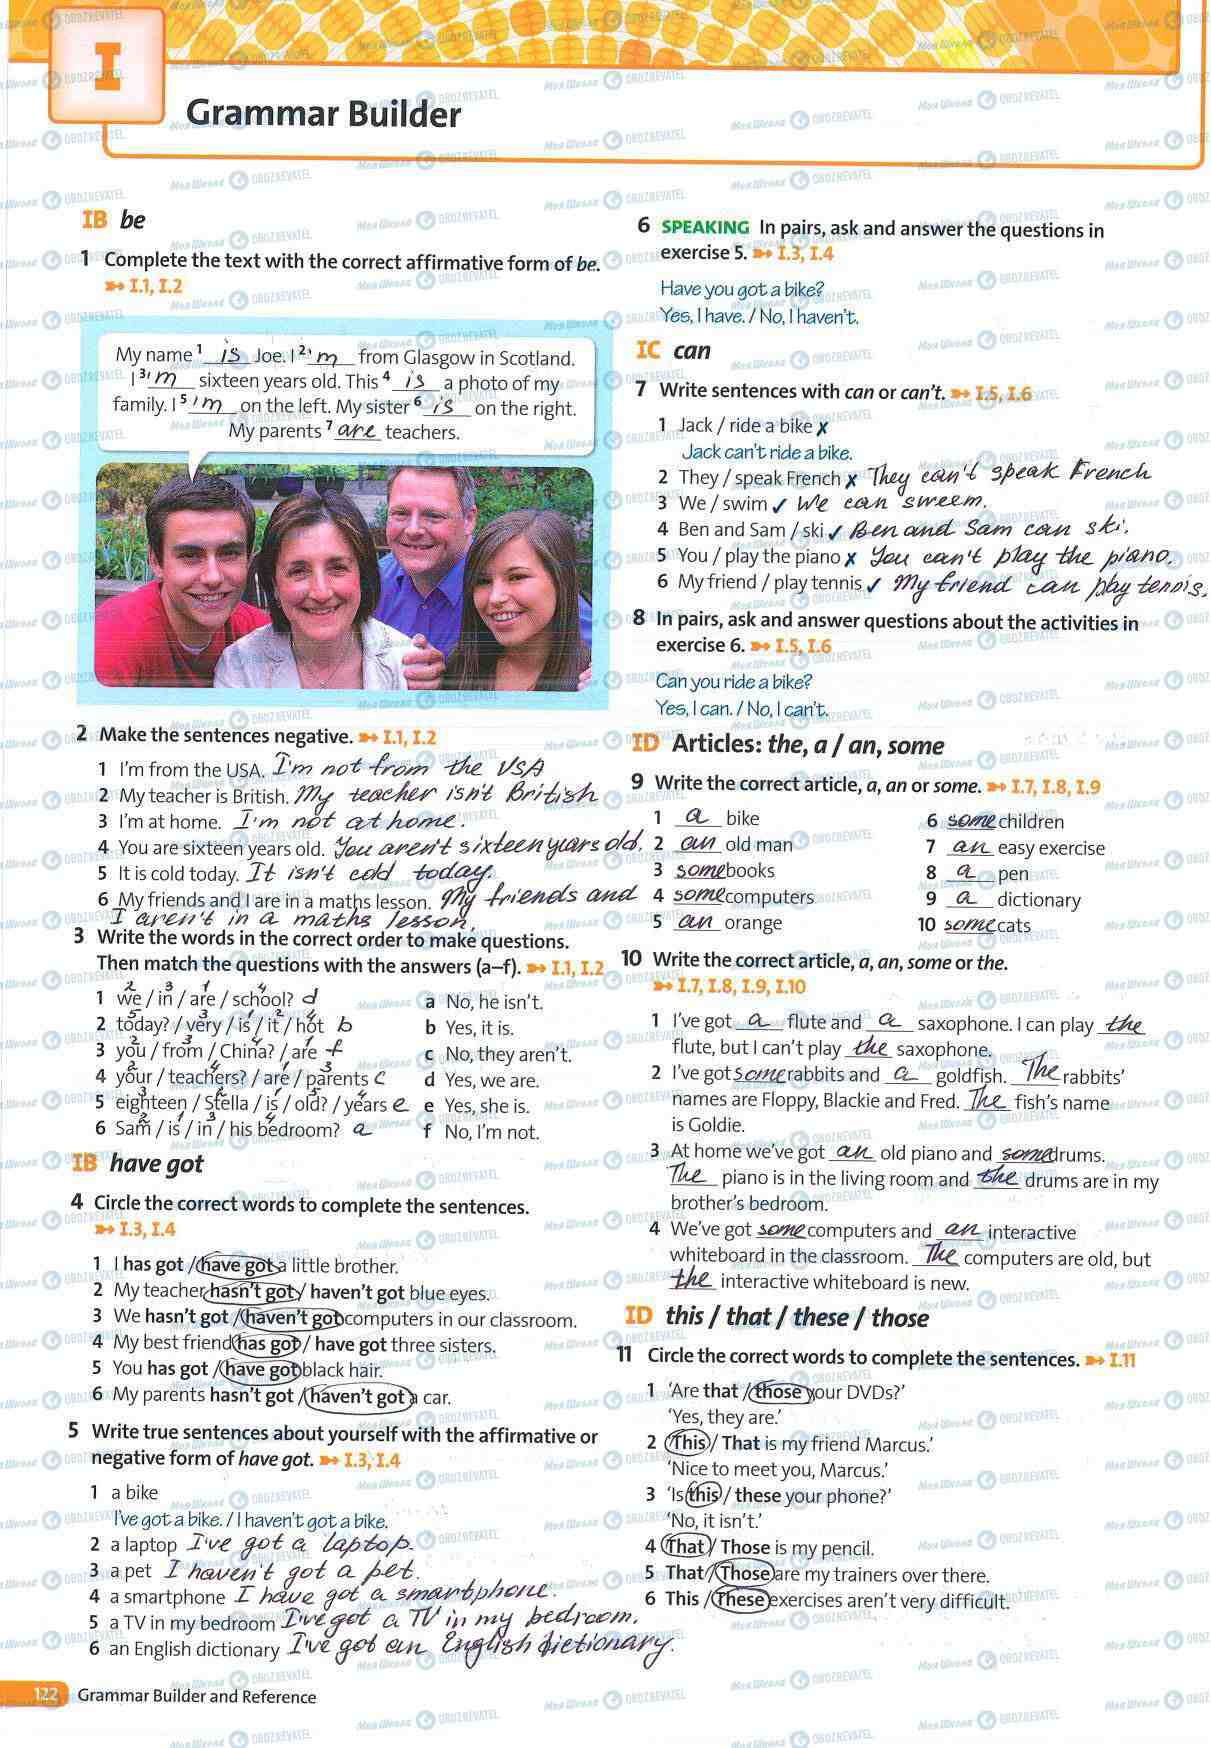 I
Grammar Builder
IB be
1 Complete the text with the correct affirmative form of be.
➻ I.1, I.2
My name ¹ is Joe. I ² 'm from Glasgow in Scotland.
I ³ 'm sixteen years old. This ⁴ is a photo of my
family. I ⁵ 'm on the left. My sister ⁶ is on the right.
My parents ⁷ are teachers.
2 Make the sentences negative. ➻ I.1, I.2
1 I'm from the USA. I'm not from the USA
2 My teacher is British. My teacher isn't British
3 I'm at home. I'm not at home.
4 You are sixteen years old. You aren't sixteen years old.
5 It is cold today. It isn't cold today.
6 My friends and I are in a maths lesson. My friends and
I aren't in a maths lesson.
3 Write the words in the correct order to make questions.
Then match the questions with the answers (a–f). ➻ I.1, I.2
2 3 1 4
1 we / in / are / school? d
5 3 1 2 4
2 today? / very / is / it / hot b
2 3 4 1
3 you / from / China? / are f
2 4 1 3
4 your / teachers? / are / parents c
3 2 1 5 4
5 eighteen / Stella / is / old? / years e
2 1 3 4
6 Sam / is / in / his bedroom? a
a No, he isn't.
b Yes, it is.
c No, they aren't.
d Yes, we are.
e Yes, she is.
f No, I'm not.
IB have got
4 Circle the correct words to complete the sentences.
➻ I.3, I.4
1 I has got / have got a little brother.
2 My teacher hasn't got / haven't got blue eyes.
3 We hasn't got / haven't got computers in our classroom.
4 My best friend has got / have got three sisters.
5 You has got / have got black hair.
6 My parents hasn't got / haven't got a car.
5 Write true sentences about yourself with the affirmative or
negative form of have got. ➻ I.3, I.4
1 a bike
I've got a bike. / I haven't got a bike.
2 a laptop I've got a laptop.
3 a pet I haven't got a pet.
4 a smartphone I have got a smartphone.
5 a TV in my bedroom I've got a TV in my bedroom.
6 an English dictionary I've got an English dictionary.
122 Grammar Builder and Reference
6 SPEAKING In pairs, ask and answer the questions in
exercise 5. ➻ I.3, I.4
Have you got a bike?
Yes, I have. / No, I haven't.
IC can
7 Write sentences with can or can't. ➻ I.5, I.6
1 Jack / ride a bike ✗
Jack can't ride a bike.
2 They / speak French ✗ They can't speak French
3 We / swim ✓ We can sweem.
4 Ben and Sam / ski ✓ Ben and Sam can ski.
5 You / play the piano ✗ You can't play the piano.
6 My friend / play tennis ✓ My friend can play tennis.
8 In pairs, ask and answer questions about the activities in
exercise 6. ➻ I.5, I.6
Can you ride a bike?
Yes, I can. / No, I can't.
ID Articles: the, a / an, some
9 Write the correct article, a, an or some. ➻ I.7, I.8, I.9
1 a bike
2 an old man
3 some books
4 some computers
5 an orange
6 some children
7 an easy exercise
8 a pen
9 a dictionary
10 some cats
10 Write the correct article, a, an, some or the.
➻ I.7, I.8, I.9, I.10
1 I've got a flute and a saxophone. I can play the
flute, but I can't play the saxophone.
2 I've got some rabbits and a goldfish. The rabbits'
names are Floppy, Blackie and Fred. The fish's name
is Goldie.
3 At home we've got an old piano and some drums.
The piano is in the living room and the drums are in my
brother's bedroom.
4 We've got some computers and an interactive
whiteboard in the classroom. The computers are old, but
the interactive whiteboard is new.
ID this / that / these / those
11 Circle the correct words to complete the sentences. ➻ I.11
1 'Are that / those your DVDs?'
'Yes, they are.'
2 'This / That is my friend Marcus.'
'Nice to meet you, Marcus.'
3 'Is this / these your phone?'
'No, it isn't.'
4 That / Those is my pencil.
5 That / Those are my trainers over there.
6 This / These exercises aren't very difficult.
Моя Школа OBOZREVATEL